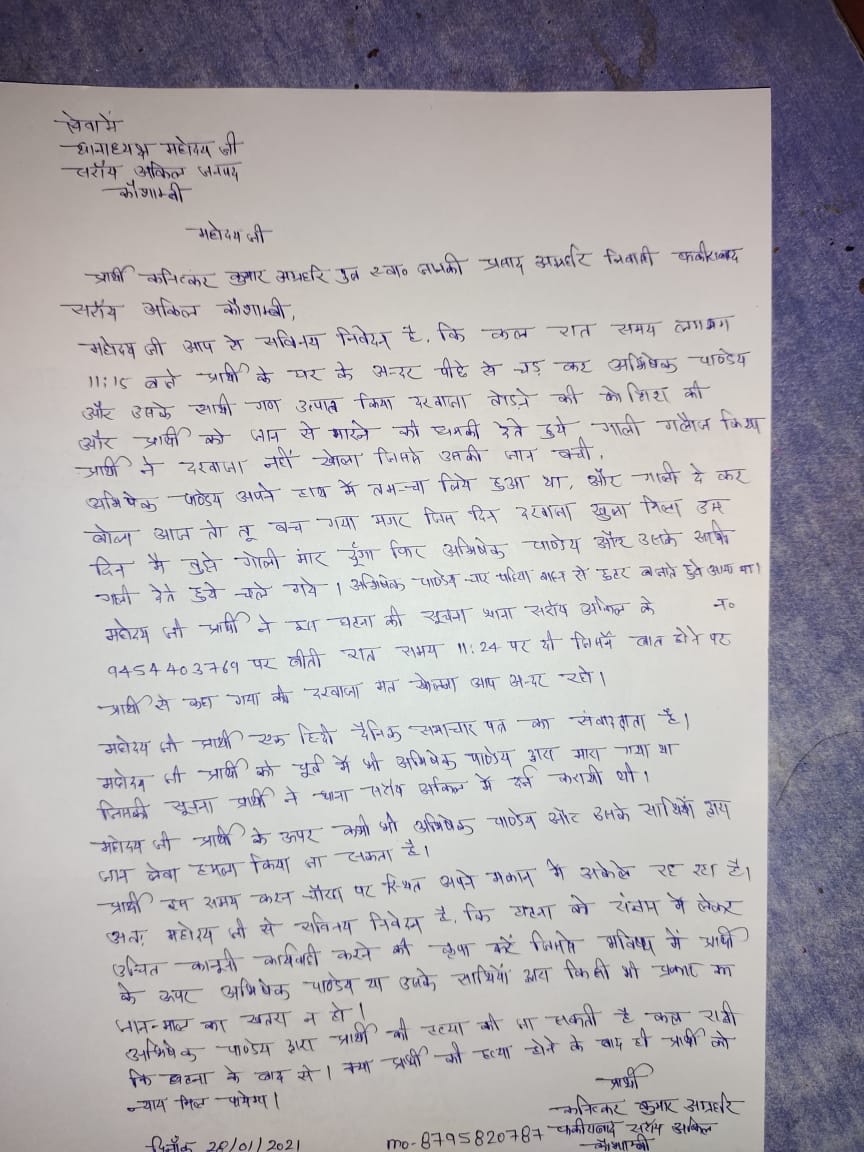 सेवा में
थानाध्यक्ष महोदय जी
सराँय अकिल जनपद
कौशाम्बी
महोदय जी
प्रार्थी कनिष्कर कुमार अग्रहरि पुत्र स्व० जानकी प्रसाद अग्रहरि निवासी फकीराबाद
सराँय अकिल कौशाम्बी,
महोदय जी आप से सविनय निवेदन है, कि कल रात समय लगभग
11:15 बजे प्रार्थी के घर के अन्दर पीछे से चढ़ कर अभिषेक पाण्डेय
और उसके साथी गण उत्पात किया दरवाजा तोडने की कोशिश की
और प्रार्थी को जान से मारने की धमकी देते हुये गाली गलौज किया
प्रार्थी ने दरवाजा नहीं खोला जिससे उसकी जान बची,
अभिषेक पाण्डेय अपने हाथ में तमन्चा लिये हुआ था, और गाली दे कर
बोला आज तो तू बच गया मगर जिस दिन दरवाजा खुला मिला उस
दिन मै तुझे गोली मार दूँगा फिर अभिषेक पाण्डेय और उसके साथी
गाली देते हुये चले गये । अभिषेक पाण्डेय चार पहिया वाहन से हूटर बजाते हुये आया था।
महोदय जी प्रार्थी ने इस घटना की सूचना थाना सराँय अकिल के नं०
9454403769 पर बीती रात समय 11:24 पर दी जिसमें बात होने पर
प्रार्थी से कहा गया की दरवाजा मत खोलना आप अन्दर रहो।
महोदय जी प्रार्थी एक हिन्दी दैनिक समाचार पत्र का संवाददाता है।
महोदय जी प्रार्थी को पूर्व में भी अभिषेक पाण्डेय द्वारा मारा गया था
जिसकी सूचना प्रार्थी ने थाना सराँय अकिल में दर्ज करायी थी।
महोदय जी प्रार्थी के ऊपर कभी भी अभिषेक पाण्डेय और उसके साथियों द्वारा
जान लेवा हमला किया जा सकता है।
प्रार्थी इस समय करन चौराहा पर स्थित अपने मकान में अकेले रह रहा है।
अतः महोदय जी से सविनय निवेदन है, कि घटना को संज्ञान में लेकर
उचित कानूनी कार्यवाही करने की कृपा करें जिससे भविष्य में प्रार्थी
के ऊपर अभिषेक पाण्डेय या उसके साथियों द्वारा किसी भी प्रकार का
जान-माल का खतरा न हो।
अभिषेक पाण्डेय द्वारा प्रार्थी की हत्या की जा सकती है कल रात्री
कि घटना के बाद से। क्या प्रार्थी की हत्या होने के बाद ही प्रार्थी को
न्याय मिल पायेगा।
प्रार्थी
कनिष्कर कुमार अग्रहरि
फकीराबाद सराँय अकिल
कौशाम्बी
दिनाँक 28/01/2021 mo-8795820787